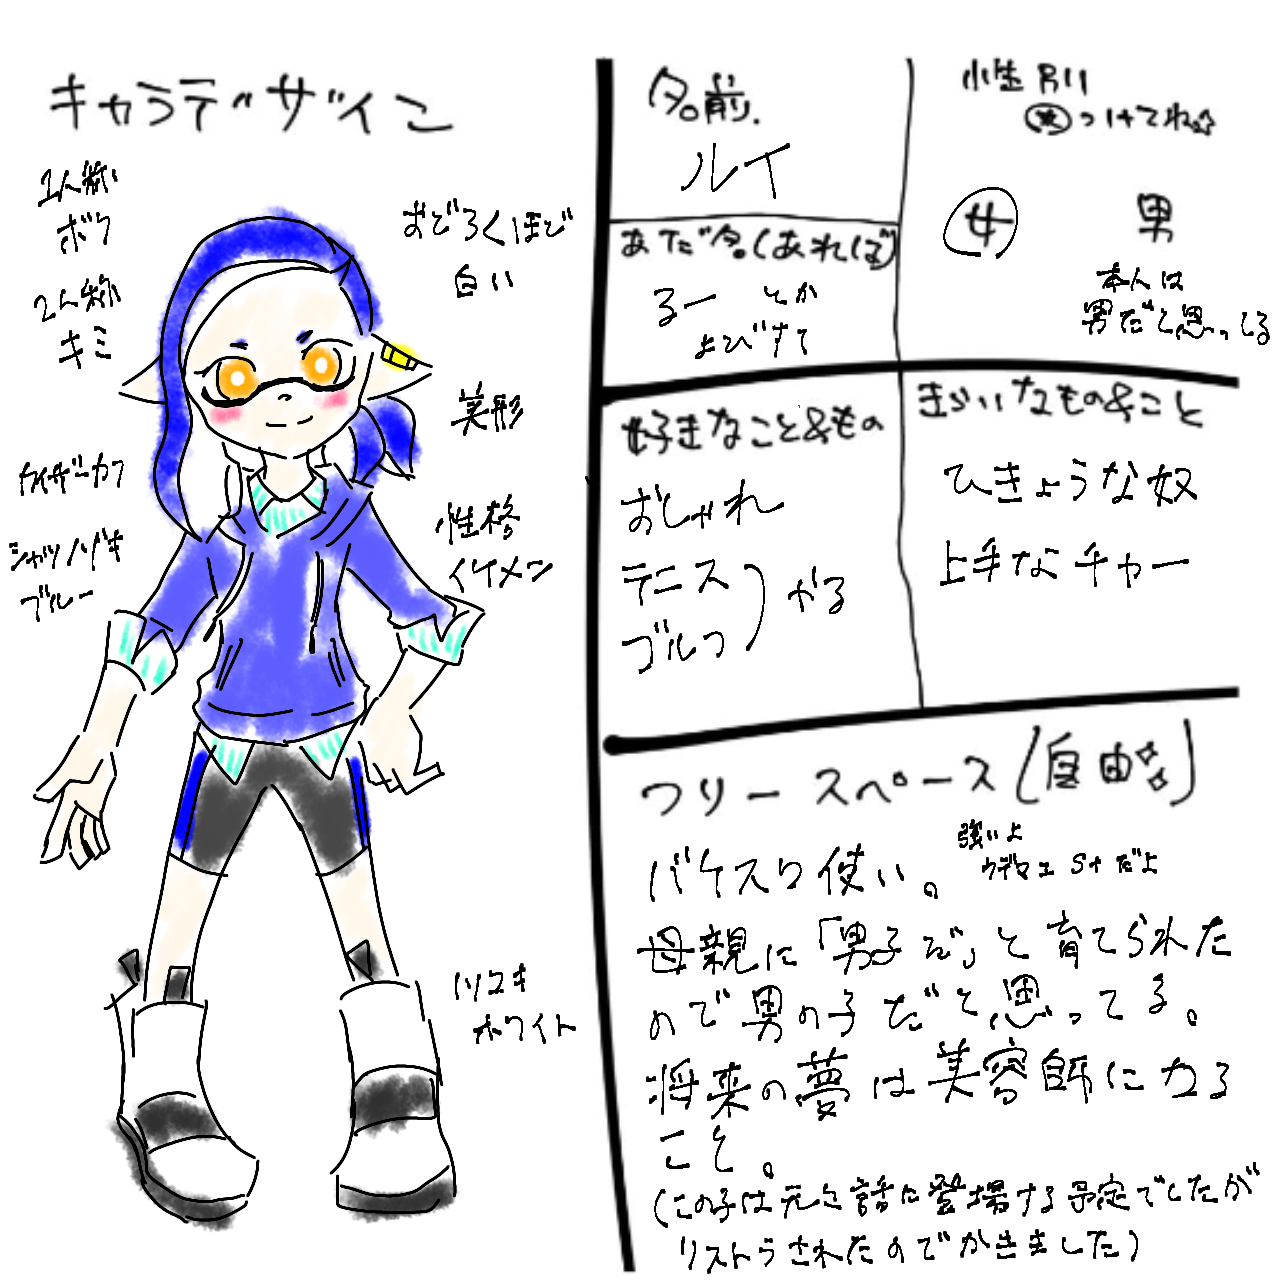 キャラデザイン
1人称
ボク
2人称
キミ
おどろくほど
白い
美形
カイザーカフ
シャツノゾキ
ブルー
性格
イケメン
トリユキ
ホワイト
名前.
ルイ
性別
つけてね☆
女 男
本人は
男だと思ってる
あだ名(あれば)
るー とか
よびすて
好きなこと&もの
おしゃれ
テニス
ゴルフ
やる
きらいなもの&こと
ひきょうな奴
上手なチャー
フリースペース(自由☆☆)
バケスロ使い。
強いよ
ウデマエ S+だよ
母親に「男子だ」と育てられた
ので男の子だと思ってる。
将来の夢は美容師になる
こと。
(この子は元々話に登場する予定でしたが
リストラされたのでかきました)